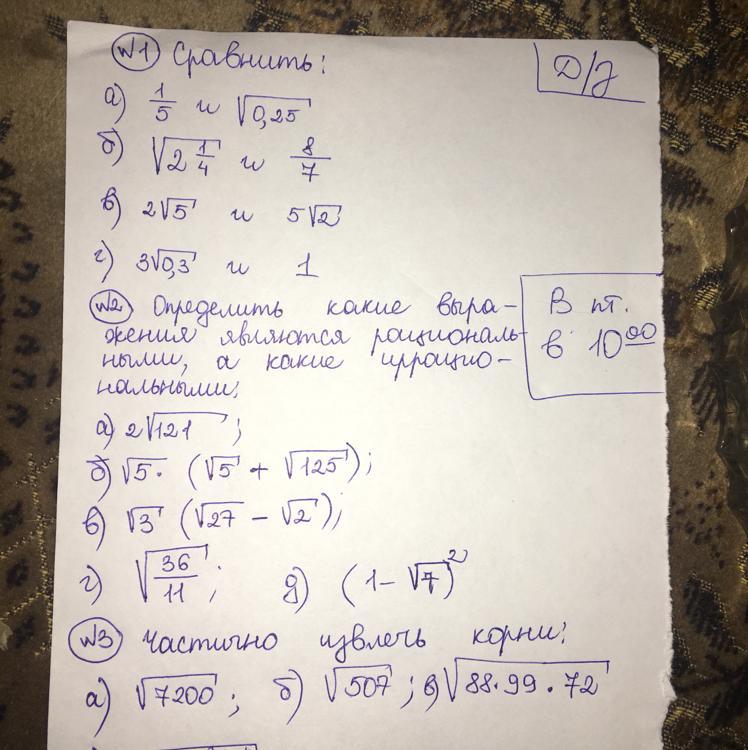 №1 Сравнить:
Д/З
а) 1/5 и √0,25
б) √2 1/4 и 8/7
в) 2√5 и 5√2
г) 3√0,3 и 1
№2 Определить какие выра-
жения являются рациональ-
ными, а какие иррацио-
нальными:
В пт.
в 10⁰⁰
а) 2√121 ;
б) √5 · (√5 + √125);
в) √3 (√27 − √2);
г) √36/11 ; д) (1 − √7)²
№3 Частично извлечь корни:
а) √7200 ; б) √507 ; в) √88·99·72